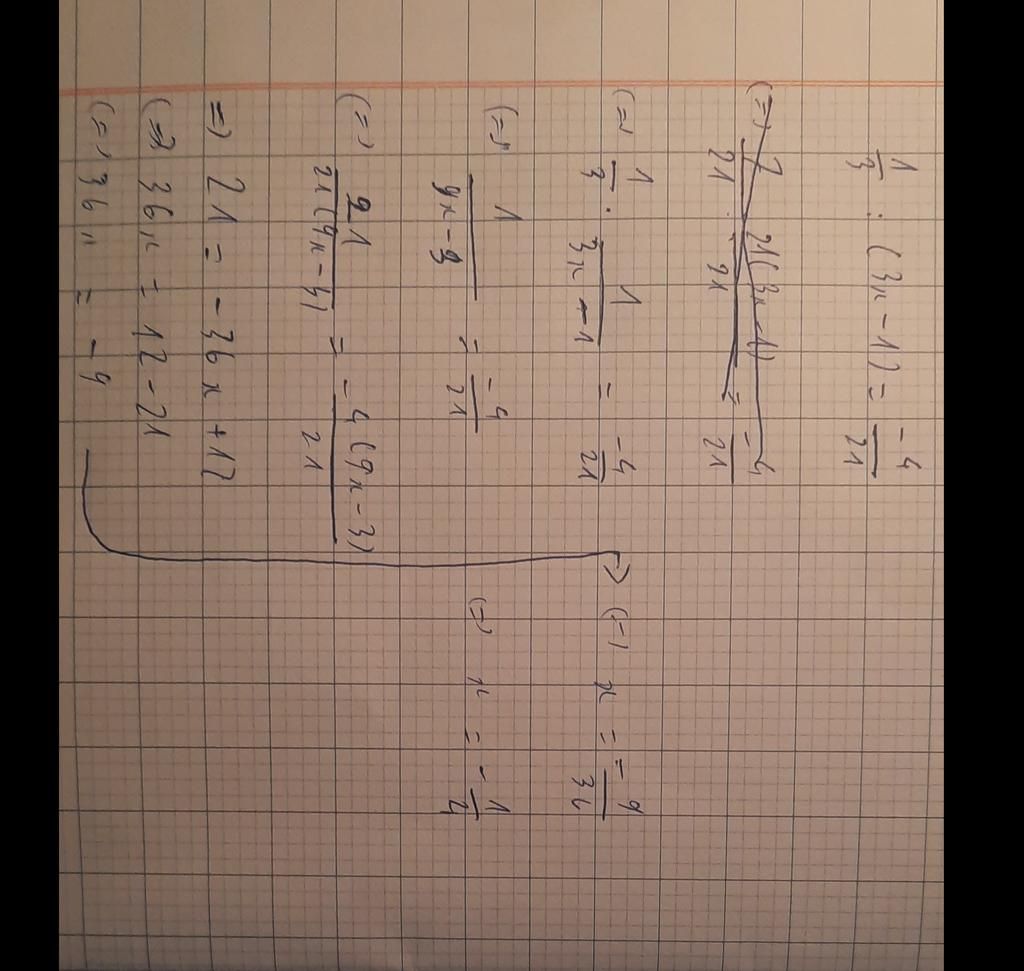 1/3 : (3x - 1) = -4/21
(=) 7/21 · 21(3x - 1)/21 = -4/21
(=) 1/3 · 1/3x - 1 = -4/21
(=) 1/9x - 3 = -4/21
(=) 21/21(9x - 3) = -4(9x - 3)/21
=) 21 = -36x + 12
(=) 36x = 12 - 21
(=) 36x = -9
(=) x = -9/36
(=) x = -1/4